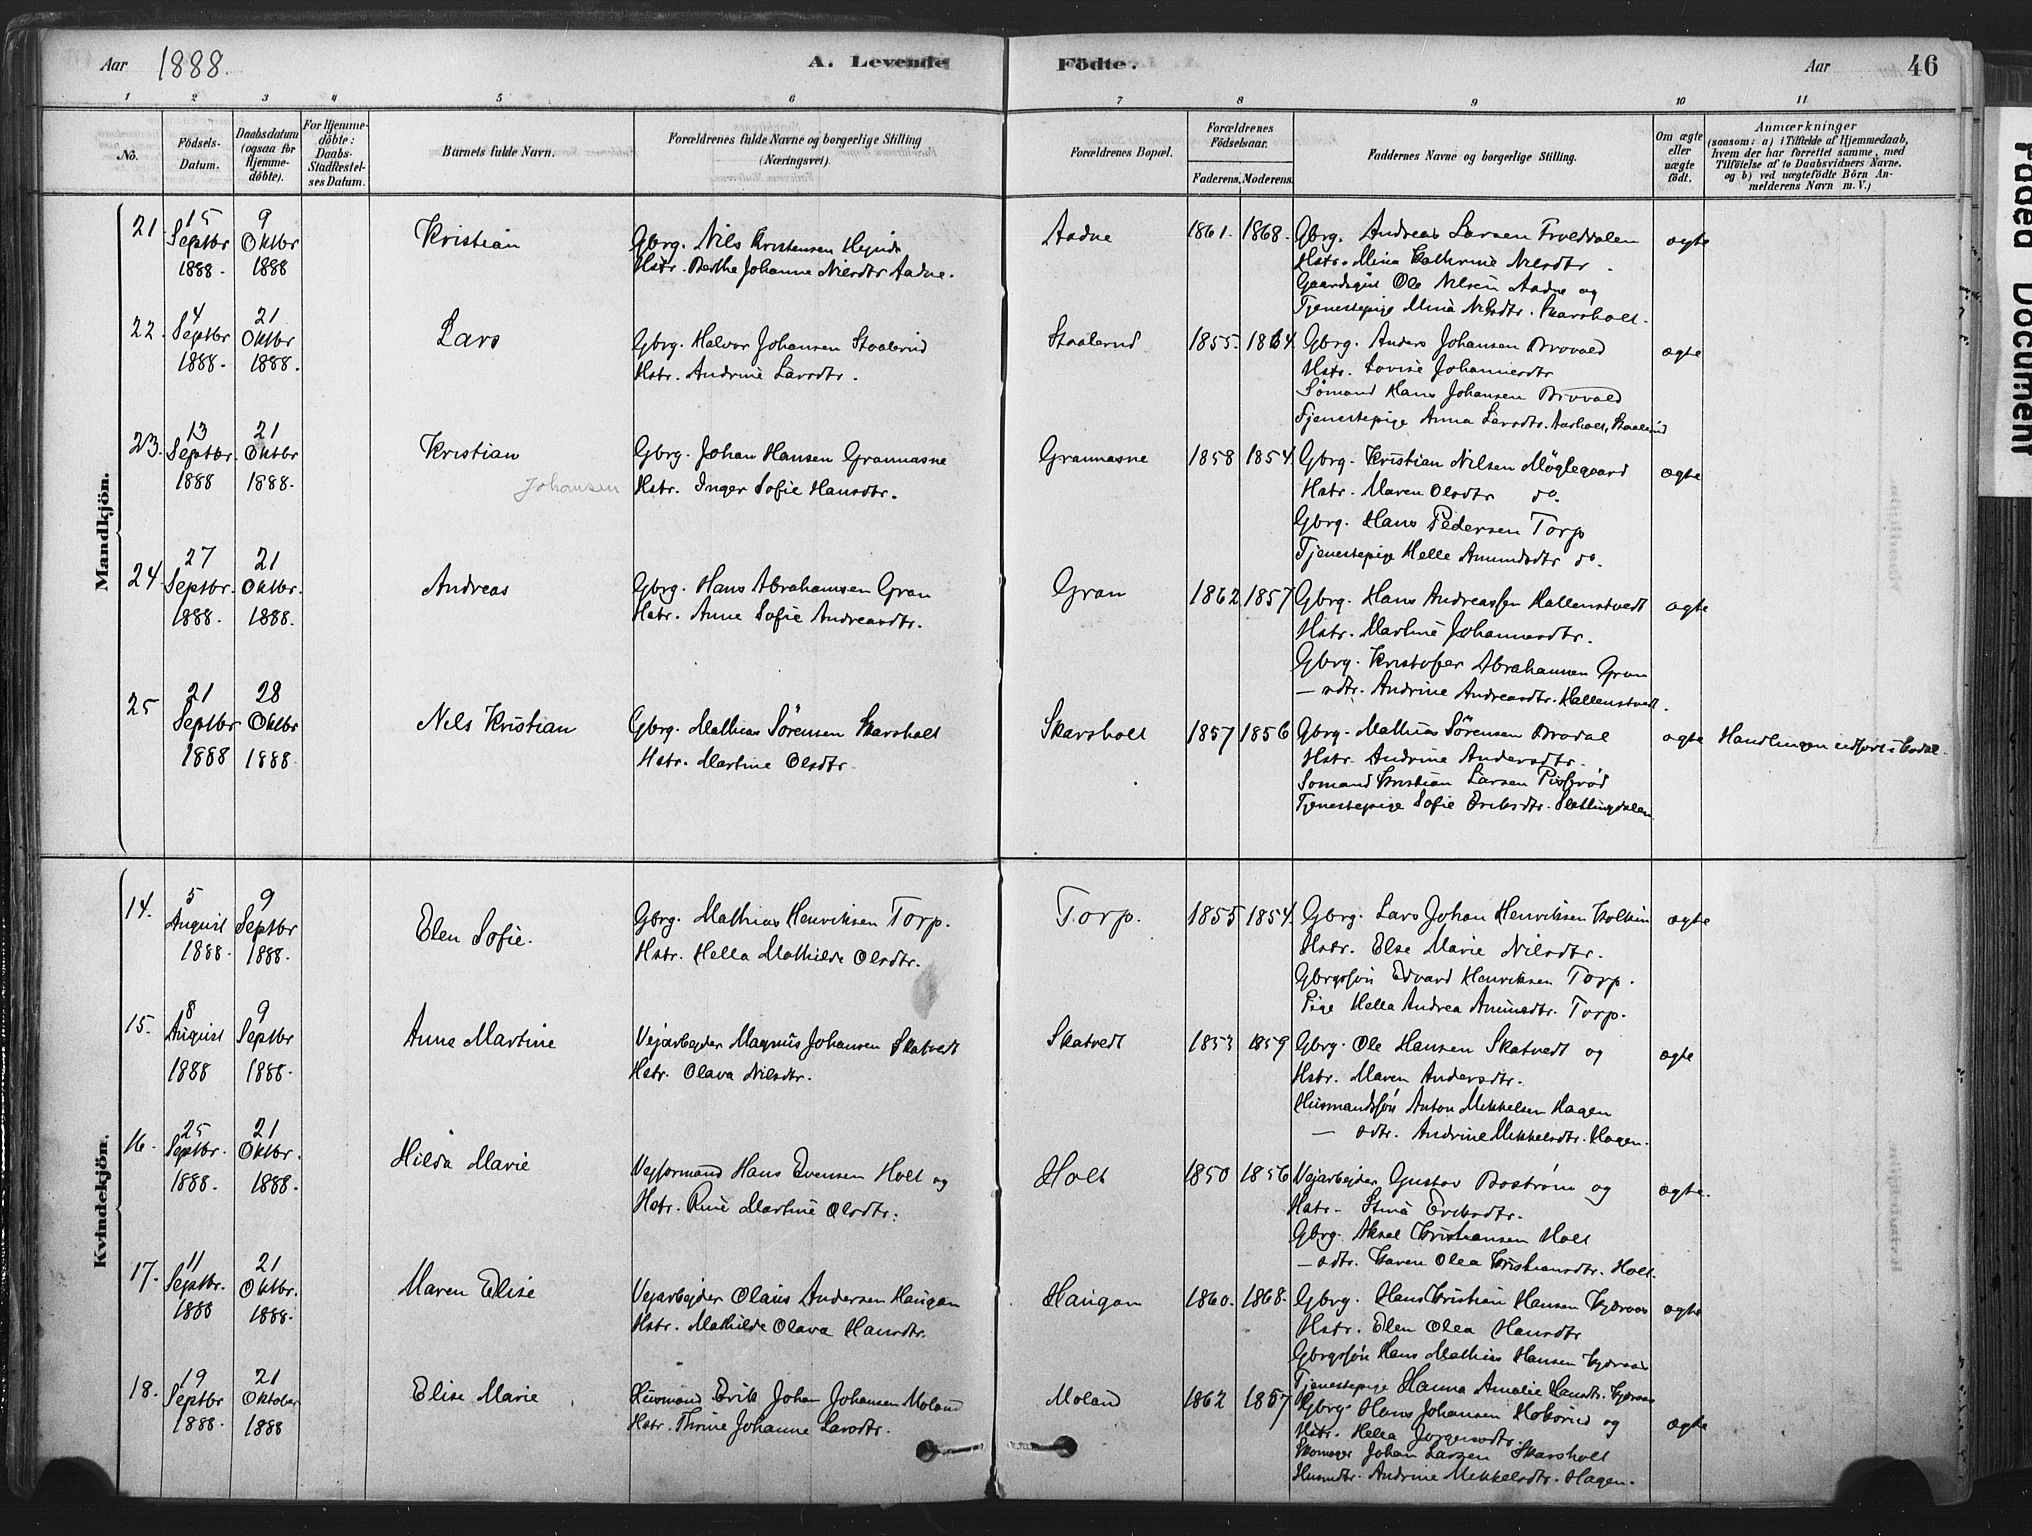 Aar 1888. A. Levende Födte. Aar 46
1 2 3 4 5 6 7 8 9 10 11
No.
Födsels-Datum.
Daabsdatum (ogsaa for Hjemme-döbte).
For Hjemme-döbte: Daabs-Stadfæstel-ses Datum.
Barnets fulde Navn.
Forældrenes fulde Navne og borgerlige Stilling
(Næringsvei).
Forældrenes Bopæl.
Forældrenes Födselsaar.
Faderens. Moderens.
Faddernes Navne og borgerlige Stilling.
Om ægte eller uægte födt.
Anmærkninger
(saasom: a) i Tilfælde af Hjemmedaab,
hvem der har forrettet samme, med
Tilföielse af to Daabsvidners Navne.
og b) ved uægtefödte Börn An-
melderens Navn m. V.)
Mandkjön.
21 15 Septbr 1888. 9 Oktbr 1888 Kristian
Gbrg. Nils Kristensen
Hstr. Berthe Johanne Nilsdtr Aadne.
Aadne 1861. 1868.
Gbrg. Andreas Larsen
Hstr. Mina Kathrine Nilsdtr.
Gaardsgut Ole Nilsen Aadne og
Tjenestepige Mina Nilsdtr. Skarsholt.
ægte
22. 4 Septbr 1888. 21 Oktbr 1888. Lars
Gbrg. Halvor Johansen Staalerud
Hstr. Andrine Larsdtr.
Staalerud 1855. 1864.
Gbrg. Anders Johansen Brovald
Hstr. Lovise Johannesdtr
Sømand Hans Johansen Brovald
Tjenestepige Anna Larsdtr. Aasholt, Staalerud
ægte
23. 13 Septbr. 1888 21 Oktbr 1888. Kristian
Johansen
Gbrg. Johan Hansen Grannasne
Hstr. Inger Sofie Hansdtr.
Grannasne 1858 1854.
Gbrg. Kristian Nilsen Møglegaard
Hstr. Maren Olsdtr do.
Gbrg. Hans Pedersen Torp
Tjenestepige Helle Amundsdtr do.
ægte
24 27 Septbr. 1888. 21 Oktbr. 1888. Andreas
Gbrg. Hans Abrahamsen Gran
Hstr. Anne Sofie Andreasdtr.
Gran 1862 1857
Gbrg. Hans Andreassen Hallenstvedt
Hstr. Martine Johannesdtr.
Gbrg. Kristofer Abrahamsen Gran
— sdtr. Andrine Andreasdtr. Hallenstvedt.
ægte
25 21 Septbr 1888 28 Oktbr 1888. Nils Kristian
Gbrg. Mathias Sørensen Skarsholt
Hstr. Martine Olsdtr.
Skarsholt 1857 1856
Gbrg. Mathias Sørensen Brodal
Hstr. Andrine Andersdtr.
Sømand Kristian Larsen
Tjenestepige Sofie Eriksdtr.
ægte
Handlingen udført i
Kvindekjön.
14. 5 August 1888. 9 Septbr 1888. Elen Sofie.
Gbrg. Mathias Henriksen Torp.
Hstr. Hella Mathilde Olsdtr.
Torp. 1855 1854.
Gbrg. Lars Johan Henriksen
Hstr. Else Marie Nilsdtr.
Gbrgssøn Edvard Henriksen Torp.
Pige Hella Andrea Amundsdtr. Torp.
ægte
15. 8 August 1888 9 Septbr 1888. Anne Martine
Vejarbejder Magnus Johansen Skatvedt
Hstr. Olava Nilsdtr.
Skatvedt 1853 1859
Gbrg. Ole Hansen Skatvedt og
Hstr. Maren Andersdtr.
Husmandssøn Anton Mikkelsen Hagen
— sdtr. Andrine Mikkelsdtr. Hagen.
ægte
16. 25 Septbr. 1888. 21 Oktbr. 1888. Hilda Marie
Vejformand Hans Evensen Holt og
Hstr. Rine Martine Olsdtr.
Holt 1850 1856
Vejarbejder Gustav Bostrøm og
Hstr. Stina Eriksdtr.
Gbrg. Aksel Kristiansen Holt
— sdtr. Karen Olea Kristiansdtr. Holt.
ægte.
17. 11 Septbr. 1888 21 Oktbr. 1888. Maren Elise
Vejarbejder Olaus Andersen Haugan
Hstr. Mathilde Olava Hansdtr.
Haugan 1860. 1868.
Gbrg. Hans Kristian Hansen Kjæraas
Hstr. Elen Olea Hansdtr
Gbrgssøn Hans Mathias Hansen Kjæraas
Tjenestepige Hanna Amalie Hansdtr. Kjæraas
ægte
18. 19 Septbr 1888. 21 Oktober 1888 Elise Marie
Husmand Erik Johan Johansen Moland
Hstr. Thrine Johanne Larsdtr.
Moland 1862 1857
Gbrg. Hans Johansen og
Hstr. Hella Jørgensdtr.
Skomager Johan Larsen Skarsholt
Husmdtr. Andrine Mikkelsdtr. Hagen.
ægte
Faded Document